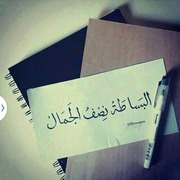 البَساطَةُ نِصْفُ الجَمال